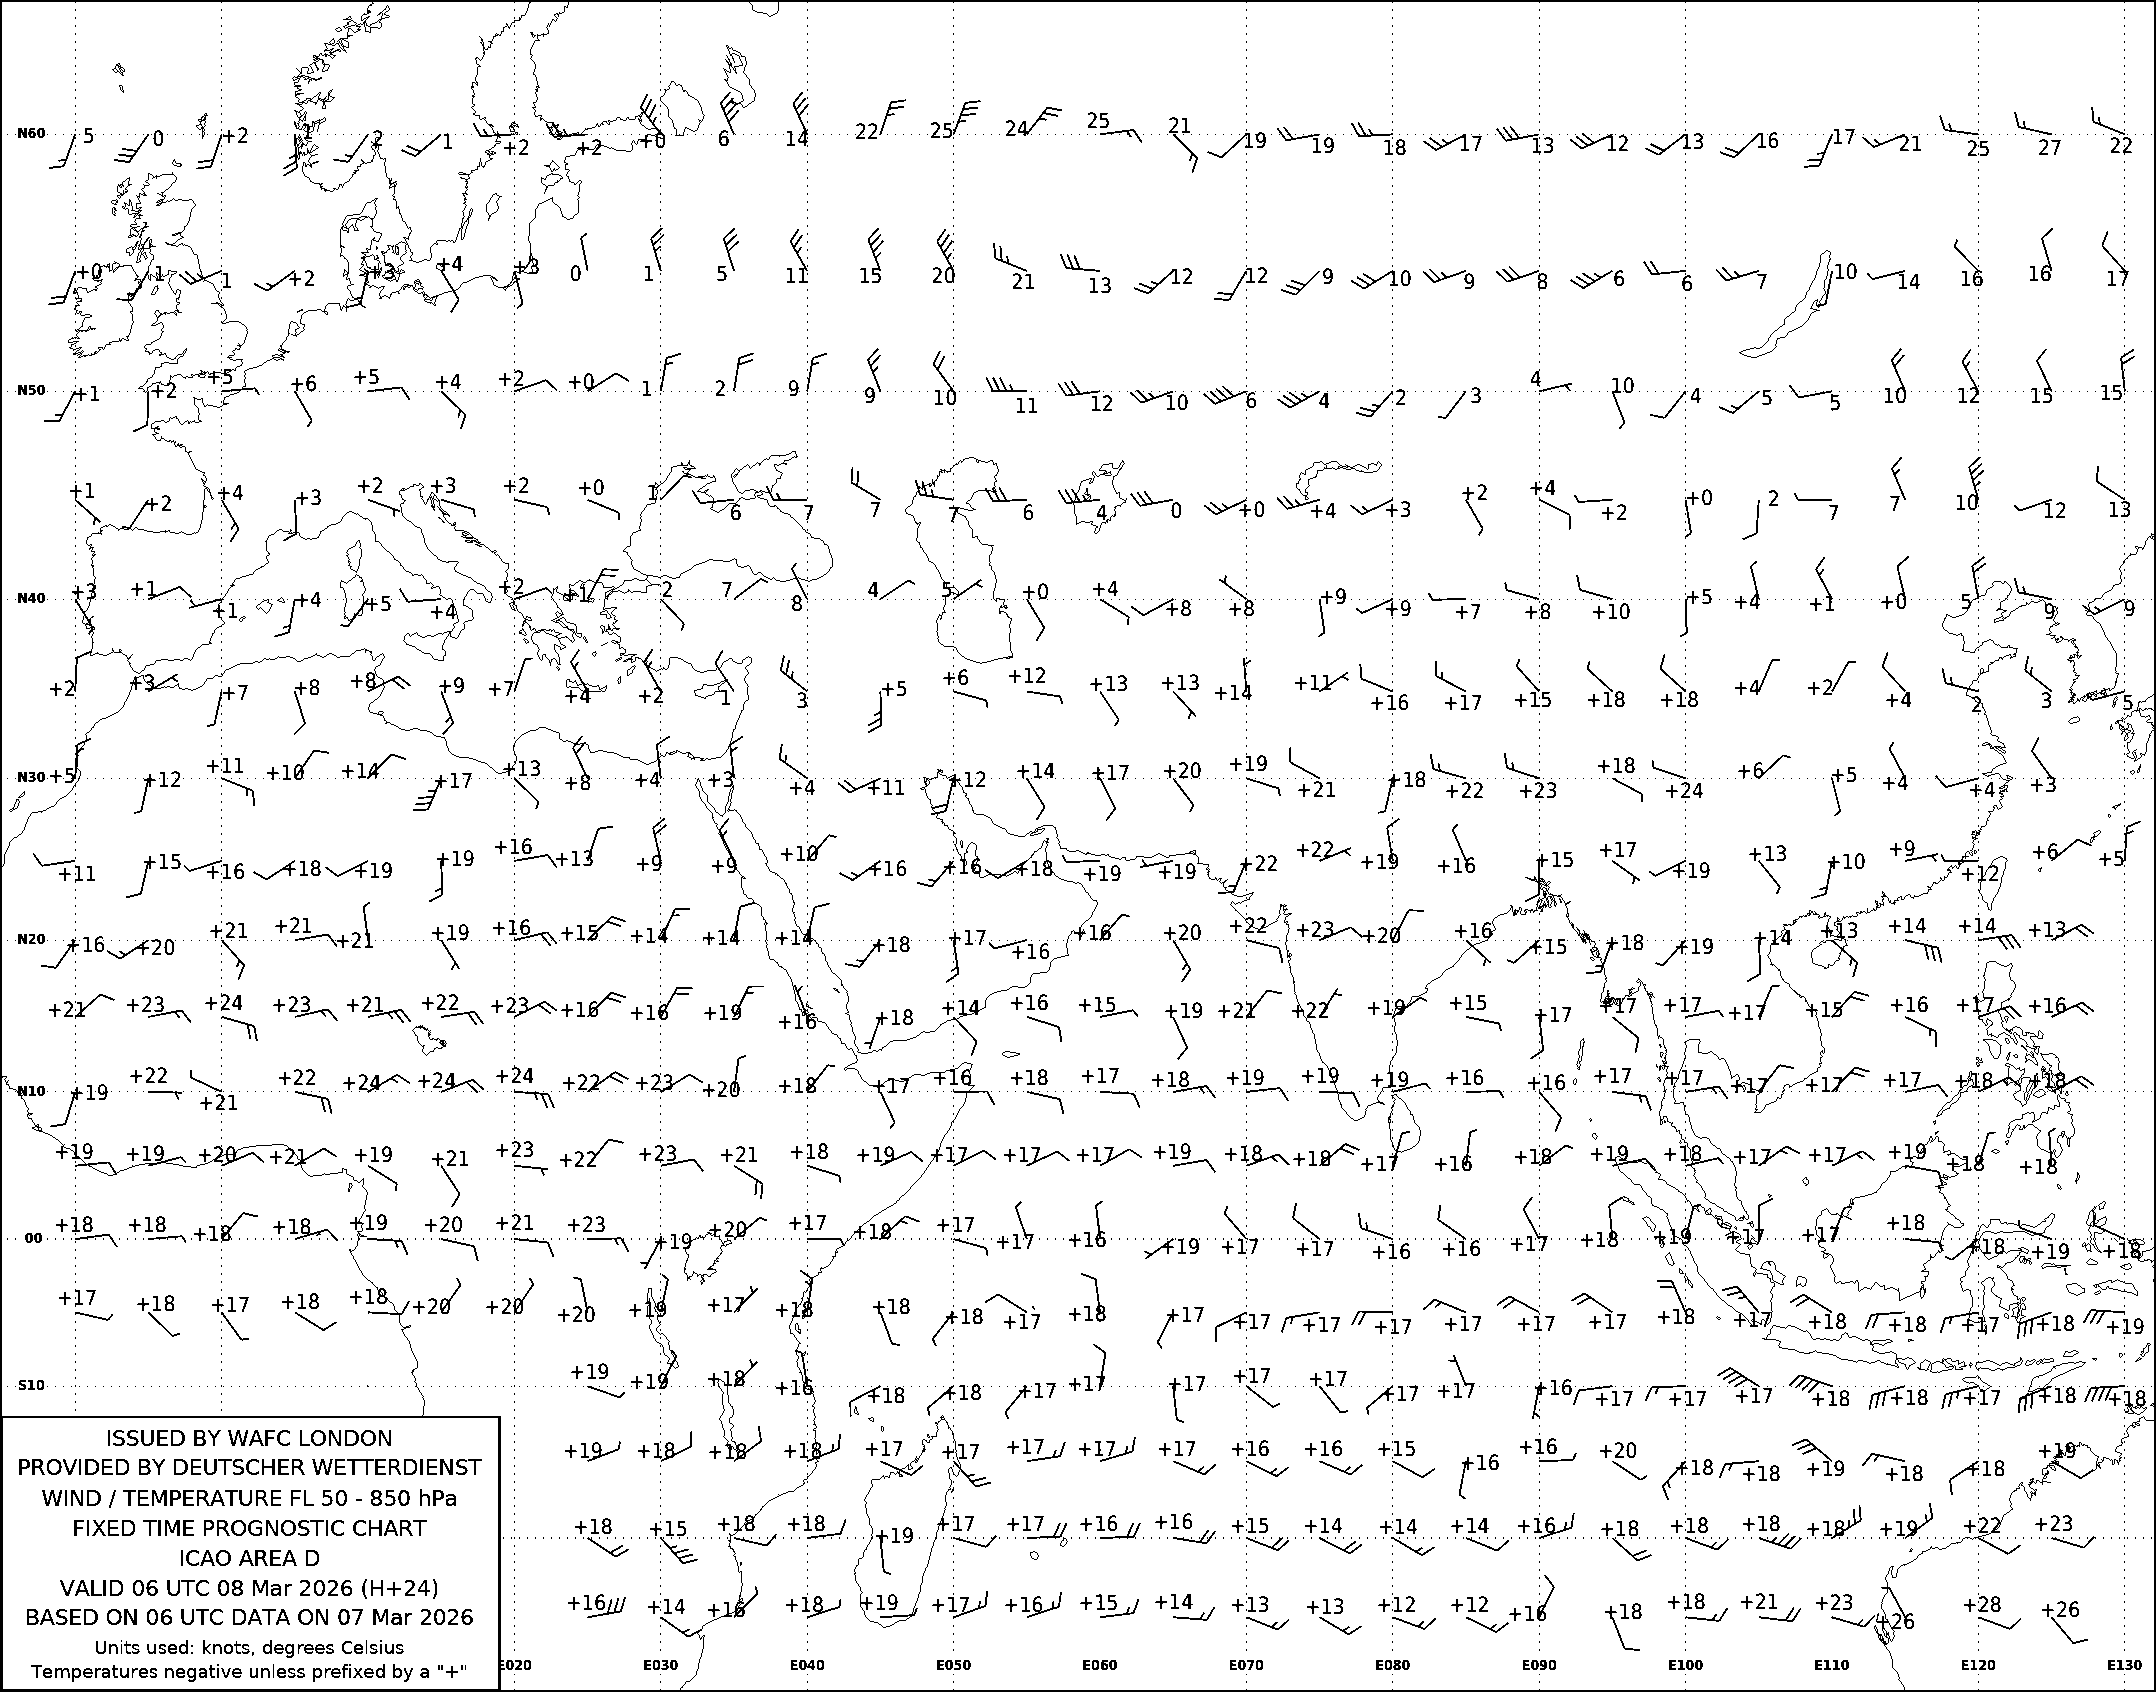 N60 5 0 +2 1 2 1 +2 +2 +0 6 14 22 25 24 25 21 19 19 18 17 13 12 13 16 17 21 25 27 22
+0 1 1 +2 +3 +4 +3 0 1 5 11 15 20 21 13 12 12 9 10 9 8 6 6 7 10 14 16 16 17
N50 +1 +2 +5 +6 +5 +4 +2 +0 1 2 9 9 10 11 12 10 6 4 2 3 4 10 4 5 5 10 12 15 15
+1 +2 +4 +3 +2 +3 +2 +0 1 6 7 7 7 6 4 0 +0 +4 +3 +2 +4 +2 +0 2 7 7 10 12 13
N40 +3 +1 +1 +4 +5 +4 +2 +1 2 7 8 4 5 +0 +4 +8 +8 +9 +9 +7 +8 +10 +5 +4 +1 +0 5 9 9
+2 +3 +7 +8 +8 +9 +7 +4 +2 1 3 +5 +6 +12 +13 +13 +14 +11 +16 +17 +15 +18 +18 +4 +2 +4 2 3 5
N30 +5 +12 +11 +10 +14 +17 +13 +8 +4 +3 +4 +11 +12 +14 +17 +20 +19 +21 +18 +22 +23 +18 +24 +6 +5 +4 +4 +3
+11 +15 +16 +18 +19 +19 +16 +13 +9 +9 +10 +16 +16 +18 +19 +19 +22 +22 +19 +16 +15 +17 +19 +13 +10 +9 +12 +6 +5
N20 +16 +20 +21 +21 +21 +19 +16 +15 +14 +14 +14 +18 +17 +16 +16 +20 +22 +23 +20 +16 +15 +18 +19 +14 +13 +14 +14 +13
+21 +23 +24 +23 +21 +22 +23 +16 +16 +19 +16 +18 +14 +16 +15 +19 +21 +22 +19 +15 +17 +17 +17 +17 +15 +16 +17 +16
N10 +19 +22 +21 +22 +24 +24 +24 +22 +23 +20 +18 +17 +16 +18 +17 +18 +19 +19 +19 +16 +16 +17 +17 +17 +17 +17 +18 +18
+19 +19 +20 +21 +19 +21 +23 +22 +23 +21 +18 +19 +17 +17 +17 +19 +18 +18 +17 +16 +18 +19 +18 +17 +17 +19 +18 +18
00 +18 +18 +18 +18 +19 +20 +21 +23 +19 +20 +17 +18 +17 +17 +16 +19 +17 +17 +16 +16 +17 +18 +19 +17 +17 +18 +18 +19 +18
+17 +18 +17 +18 +18 +20 +20 +20 +19 +17 +18 +18 +18 +17 +18 +17 +17 +17 +17 +17 +17 +17 +18 +17 +18 +18 +17 +18 +19
S10 +19 +19 +18 +16 +18 +18 +17 +17 +17 +17 +17 +17 +17 +16 +17 +17 +17 +18 +18 +17 +18 +18
+19 +18 +18 +18 +17 +17 +17 +17 +17 +16 +16 +15 +16 +16 +20 +18 +18 +19 +18 +18 +19
+18 +15 +18 +18 +19 +17 +17 +16 +16 +15 +14 +14 +14 +16 +18 +18 +18 +18 +19 +22 +23
+16 +14 +16 +18 +19 +17 +16 +15 +14 +13 +13 +12 +12 +16 +18 +18 +21 +23 +26 +28 +26
ISSUED BY WAFC LONDON
PROVIDED BY DEUTSCHER WETTERDIENST
WIND / TEMPERATURE FL 50 - 850 hPa
FIXED TIME PROGNOSTIC CHART
ICAO AREA D
VALID 06 UTC 08 Mar 2026 (H+24)
BASED ON 06 UTC DATA ON 07 Mar 2026
Units used: knots, degrees Celsius
Temperatures negative unless prefixed by a "+"
E020 E030 E040 E050 E060 E070 E080 E090 E100 E110 E120 E130